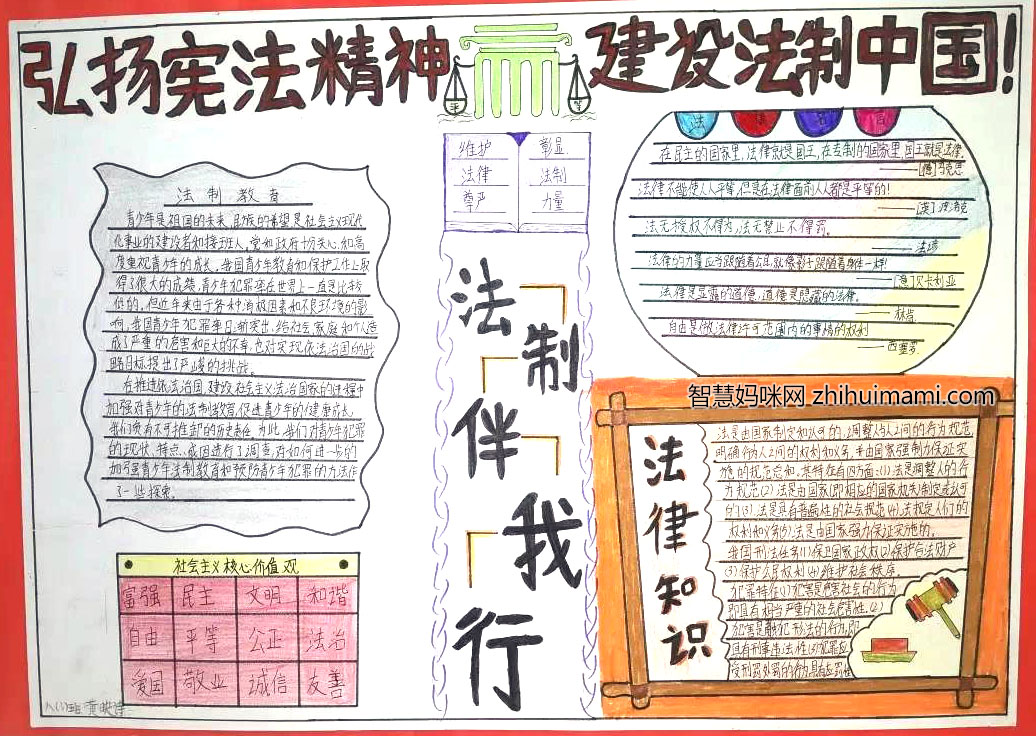 弘扬宪法精神
建设法制中国!
平
等
维护
法律
尊严
彰显
法制
力量
法制教育
青少年是祖国的未来,民族的希望,是社会主义现代
化事业的建设者和接班人,党和政府十分关心和高
度重视青少年的成长,我国青少年教育和保护工作上取
得了很大的成绩,青少年犯罪率在世界上一直是比较
低的,但近年来由于各种消极因素和不良环境的影
响,我国青少年犯罪率日渐突出,给社会、家庭和个人造
成了严重的危害和巨大的不幸,也对实现依法治国的战
略目标提出了严峻的挑战。
在推进依法治国,建设社会主义法治国家的过程中
加强对青少年的法制教育,促进青少年的健康成长,
我们负有不可推卸的历史责任,为此,我们对青少年犯罪
的现状、特点、成因进行了调查,并如何进一步的
加强青少年法制教育和预防青少年犯罪的方法作
了一些探索。
社会主义核心价值观
富强 民主 文明 和谐
自由 平等 公正 法治
爱国 敬业 诚信 友善
法制伴我行
法
名
言
在民主的国家里,法律就是国王,在专制的国家里,国王就是法律。
——[德]马克思
法律不能使人人平等,但是在法律面前人人都是平等的!
——[英]波洛克
法无授权不得为,法无禁止不得罚。
——法谚
法律的力量应当跟随着公民,就像影子跟随着身体一样!
——[意]贝卡利亚
法律是显露的道德,道德是隐藏的法律。
——林肯
自由是做法律许可范围内的事情的权利
——西塞罗
智慧妈咪网 zhihuimami.com
法律知识
法是由国家制定和认可的,调整人与人之间的行为规范,
明确行为人之间的权利和义务,并由国家强制力保证实
施的规范总和,其特征有四方面:(1)法是调整人的行
为规范(2)法是由国家(即相应的国家机关)制定或认可
的(3)法是具有普遍性的社会规范(4)法规定人们的
权利和义务(5)法是由国家强力保证实施的。
我国刑法任务(1)保卫国家政权(2)保护合法财产
(3)保护公民权利(4)维护社会秩序。
犯罪特征(1)犯害是危害社会的行为
即具有相当严重的社会危害性。(2)
犯害是触犯刑法的行为,即
具有刑事违法性(3)犯罪应
受刑罚处罚的行为,具有应罚性